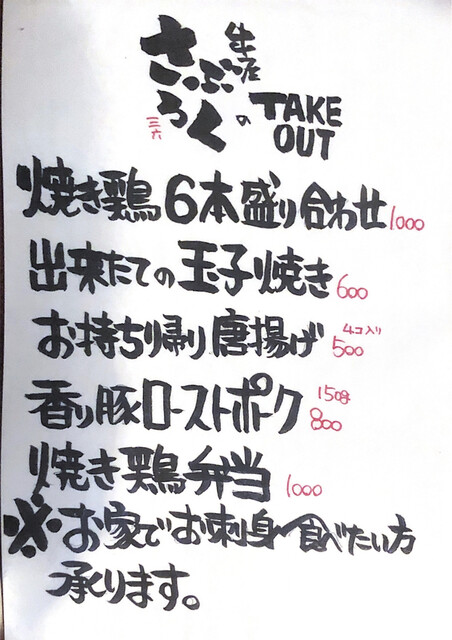 生産
さぶ
ろくの
三六
TAKE
OUT
焼き鶏6本盛り合わせ 1000
出来たての玉子焼き 600
お持ち帰り唐揚げ 4コ入り 500
香り豚ローストポーク 150g 800
焼き鶏弁当 1000
※お家でお刺身食べたい方
承ります。